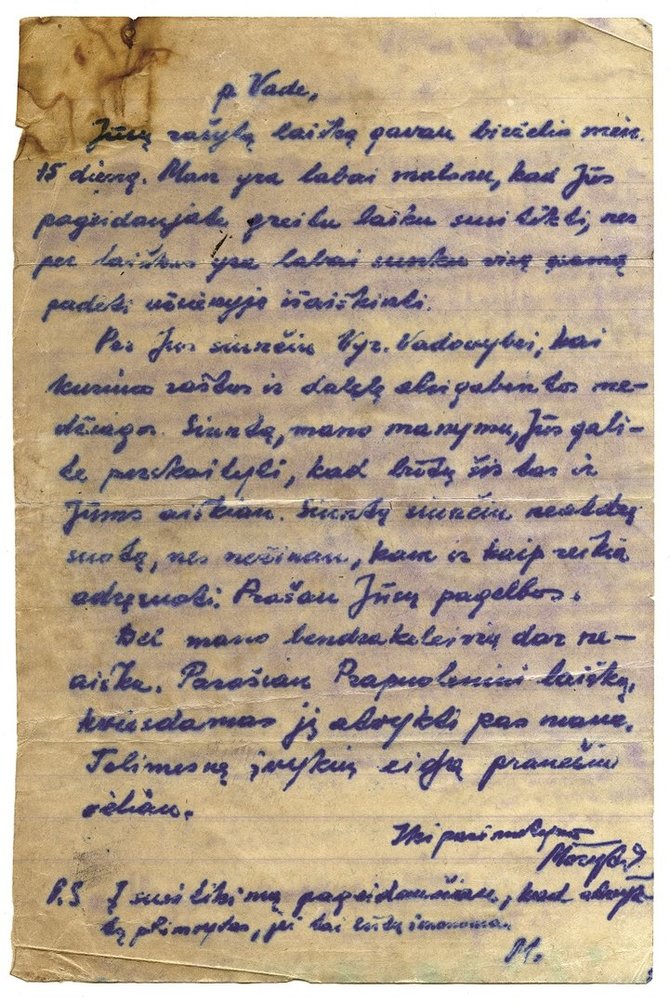 p. Vade,
Jūsų rašytą laišką gavau birželio mėn.
15 dieną. Man yra labai malonu, kad Jūs
pageidaujate greitu laiku susitikti, nes
per laiškus yra labai sunku visą
padėti užsienyje išaiškinti.
Per Jus siunčiu Vyr. Vadovybei, kai
kuriuos raštus ir dalelę atsigabentos me-
džiagos. Siuntą, mano manymu, Jūs gali-
te perskaityti, kad būtų šis tas ir
Jums aiškiau. Siuntą siunčiu neadre-
suotą, nes nežinau, kam ir kaip reikia
adresuoti. Prašau Jūsų pagelbos.
Dėl mano bendrakeleivių dar ne-
aišku. Parašiau Prapuolenini laišką,
kviesdamas jį atvykti pas mane.
Tolimesnę įvykių eigą pranešiu
vėliau.
Iki pasimatymo
P.S. Į susitikimą pageidaučiau, kad atvyk-
tų p. , jei tai būtų įmanoma.
M.